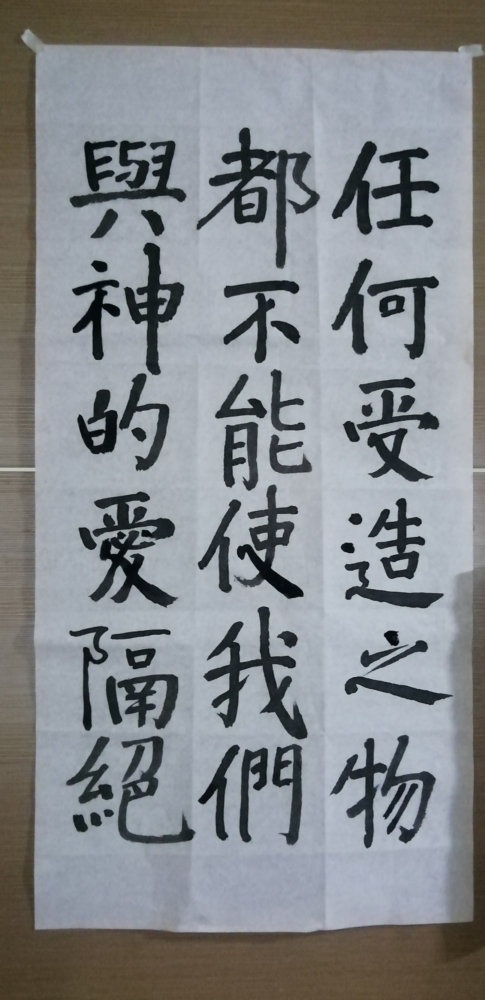 任何受造之物
都不能使我們
與神的愛隔絕